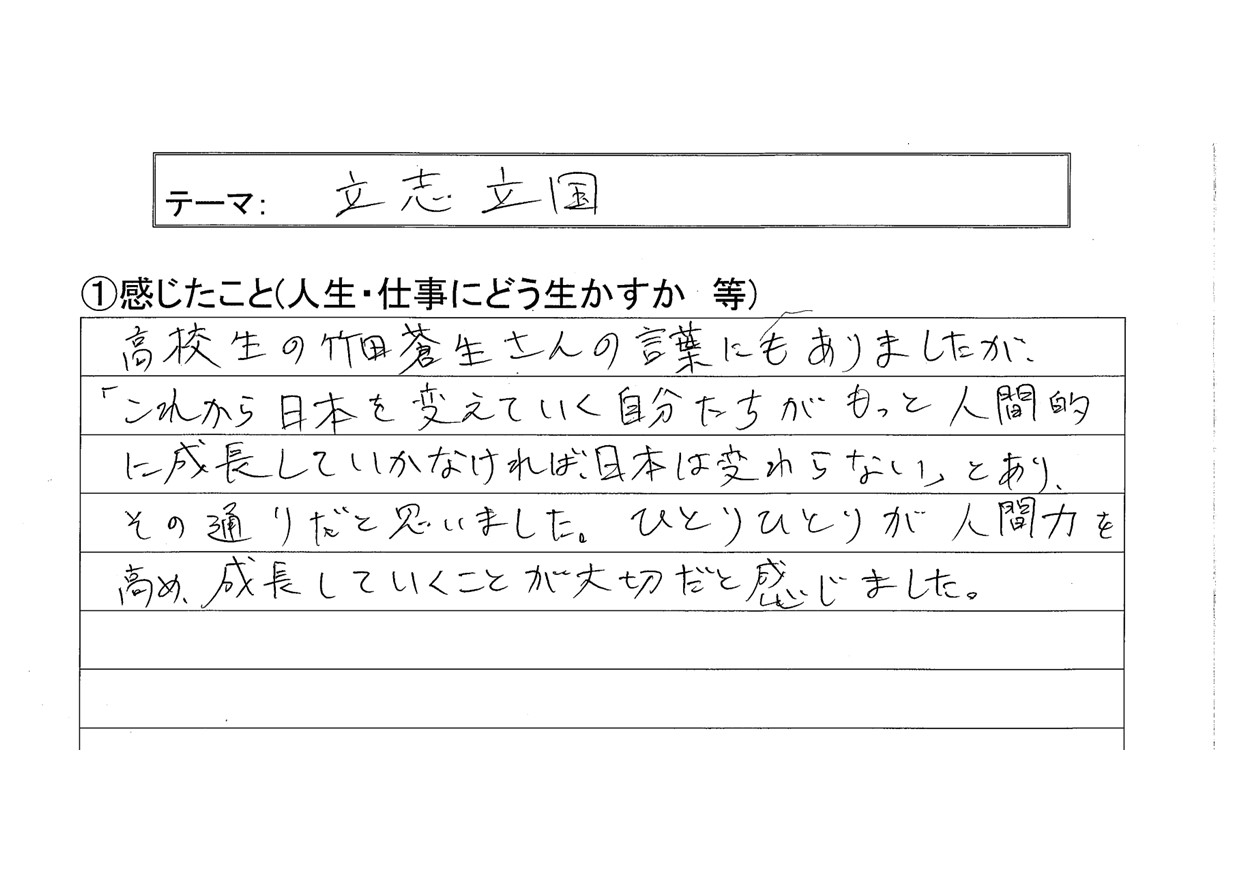 テーマ： 立志立国
①感じたこと(人生・仕事にどう生かすか　等)
高校生の竹田蒼生さんの言葉にもありましたが、
「これから日本を変えていく自分たちがもっと人間的
に成長していかなければ、日本は変わらない」とあり、
その通りだと思いました。ひとりひとりが人間力を
高め、成長していくことが大切だと感じました。